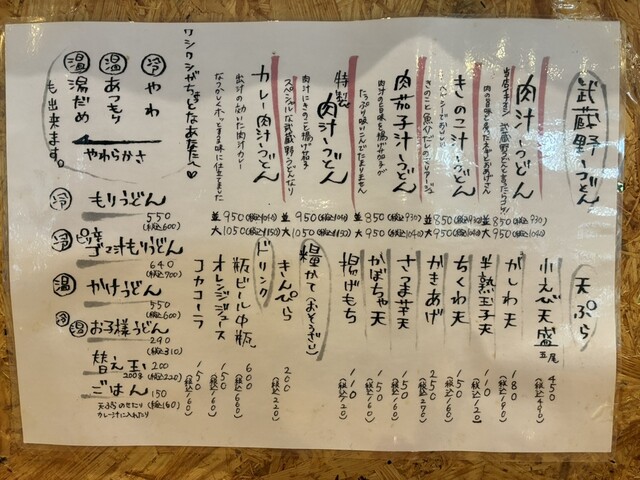 武蔵野うどん
肉汁うどん
当店イチオシ 武蔵野うどんと言ったらコレ!
肉の旨味と煮たネギとおあげさん
並 850(税込930)
大 950(税込1040)
きのこ汁うどん
ヘルシーだがおいしい
きのこと魚介だしのマリアージュ
並 850(税込930)
大 950(税込1040)
肉茄子汁うどん
肉汁の旨味を揚げ茄子が
たっぷり吸いこんでたまりません
並 850(税込930)
大 950(税込1040)
特製肉汁うどん
肉汁にきのこと揚げ茄子
スペシャルな武蔵野うどんなり
並 950(税込1040)
大 1050(税込1150)
カレー肉汁うどん
出汁の効いた肉汁カレー
なつかしくホッとする味に仕立てました
並 950(税込1040)
大 1050(税込1150)
ワシクシがちょっとなあなたへ♡
冷 やわ
温 あつもり
温 湯だめ
も出来ます。
やわらかさ
冷 もりうどん
550
(税込600)
冷 ピリ辛ゴマ汁もりうどん
640
(税込700)
温 かけうどん
550
(税込600)
冷 温 お子様うどん
290
(税込310)
替え玉 200
200g (税込220)
ごはん 150
(税込160)
天ぷらのせたり
カレー汁に入れたり
天ぷら
小えび天盛 五尾 450(税込490)
かしわ天 180(税込190)
半熟玉子天 110(税込120)
ちくわ天 150(税込160)
かきあげ 250(税込270)
さつま芋天 150(税込160)
かぼちゃ天 150(税込160)
揚げもち 110(税込120)
糧かて(おそうざい)
きんぴら 200(税込220)
ドリンク
瓶ビール中瓶 600(税込660)
オレンジジュース 150(税込160)
コカコーラ 150(税込160)